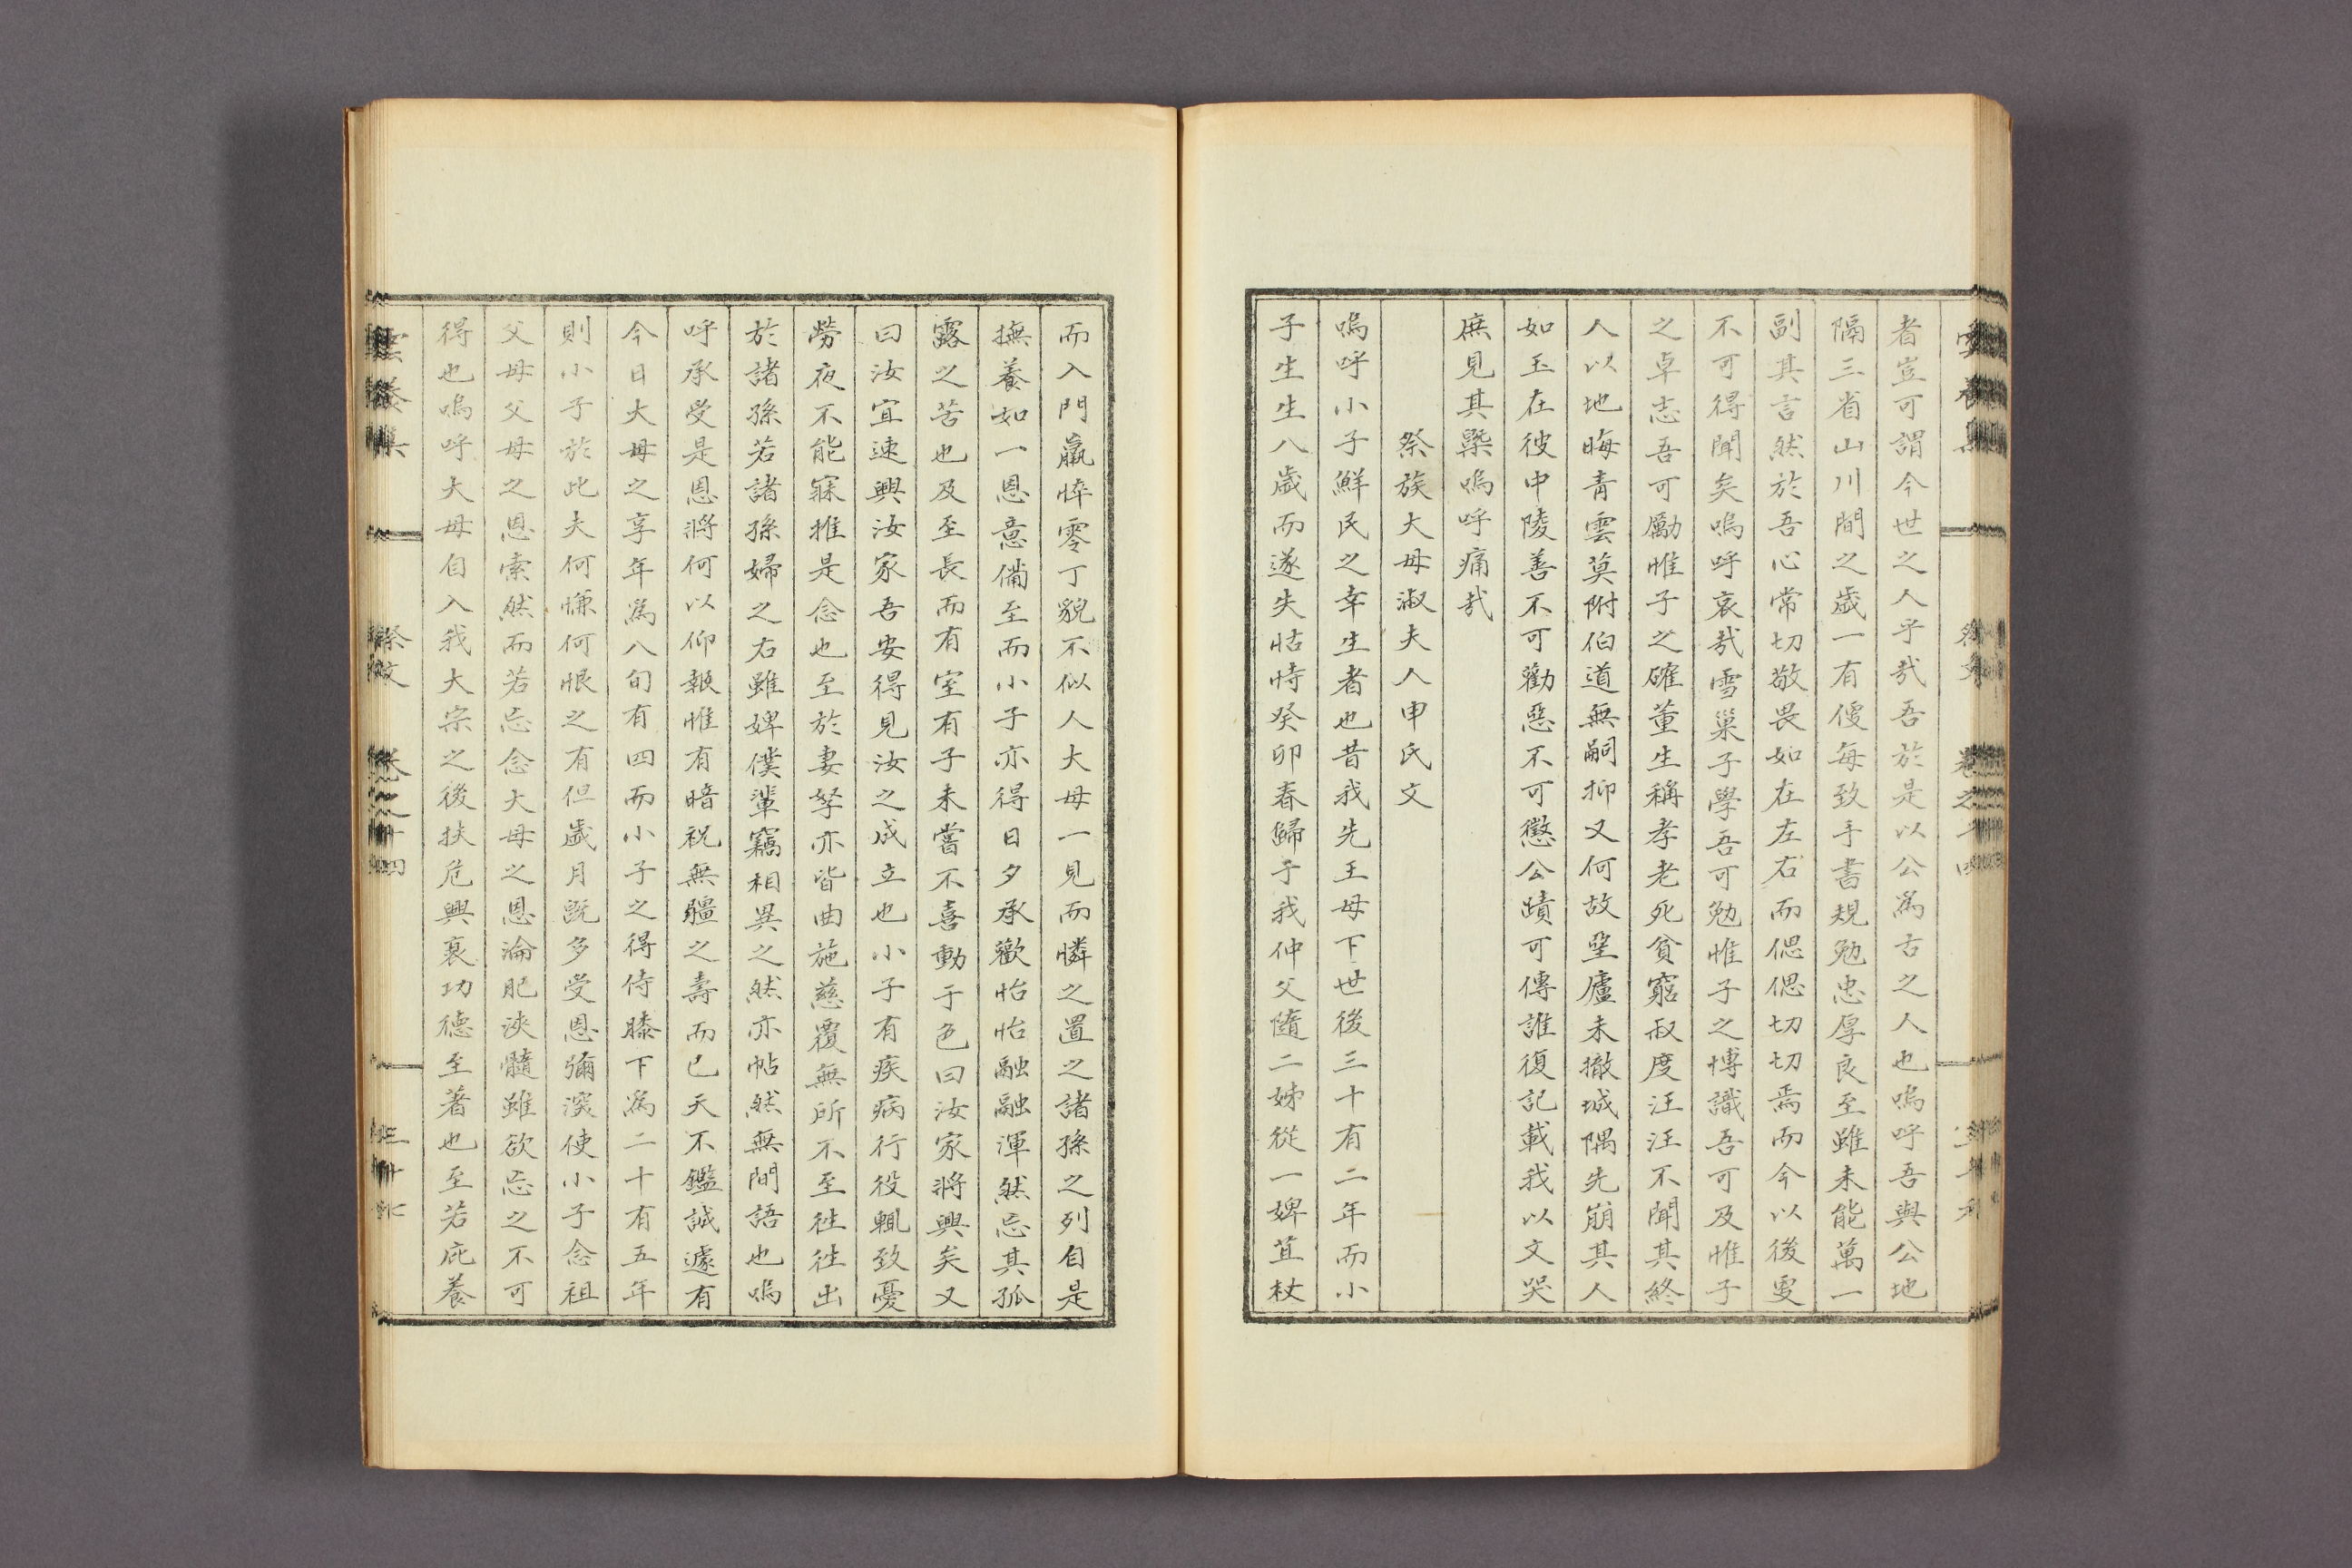 者豈可謂今世之人乎哉吾於是以公爲古之人也嗚呼吾與公地
隔三省山川間之歲一有便每致手書規勉忠厚良至雖未能萬一
副其言然於吾心常切敬畏如在左右而偲偲切切焉而今以後更
不可得聞矣嗚呼哀哉雪巢子學吾可勉惟子之博識吾可及惟子
之卓志吾可勵惟子之確董生稱孝老死貧窮叔度汪汪不聞其終
人以地晦靑雲莫附伯道無嗣抑又何故堊廬未撤城隅先崩其人
如玉在彼中陵善不可勸惡不可懲公蹟可傳誰復記載我以文哭
庶見其槩嗚呼痛哉
祭族大母淑夫人申氏文
嗚呼小子鮮民之幸生者也昔我先王母下世後三十有二年而小
子生生八歲而遂失怙恃癸卯春歸于我仲父隨二姊從一婢苴杖
而入門羸悴零丁貌不似人大母一見而憐之置之諸孫之列自是
撫養如一恩意備至而小子亦得日夕承歡怡怡融融渾然忘其孤
露之苦也及至長而有室有子未嘗不喜動于色曰汝家將興矣又
曰汝宜速興汝家吾安得見汝之成立也小子有疾病行役輒致憂
勞夜不能寐推是念也至於妻孥亦皆曲施慈覆無所不至往往出
於諸孫若諸孫婦之右雖婢僕輩竊相異之然亦帖然無間語也嗚
呼承受是恩將何以仰報惟有暗祝無疆之壽而已天不鑑誠遽有
今日大母之享年爲八旬有四而小子之得侍膝下爲二十有五年
則小子於此夫何慊何恨之有但歲月旣多受恩彌深使小子念祖
父母父母之恩索然而若忘念大母之恩淪肥浹髓雖欲忘之不可
得也嗚呼大母自入我大宗之後扶危興衰功德至著也至若庇養
祭文 卷之十四